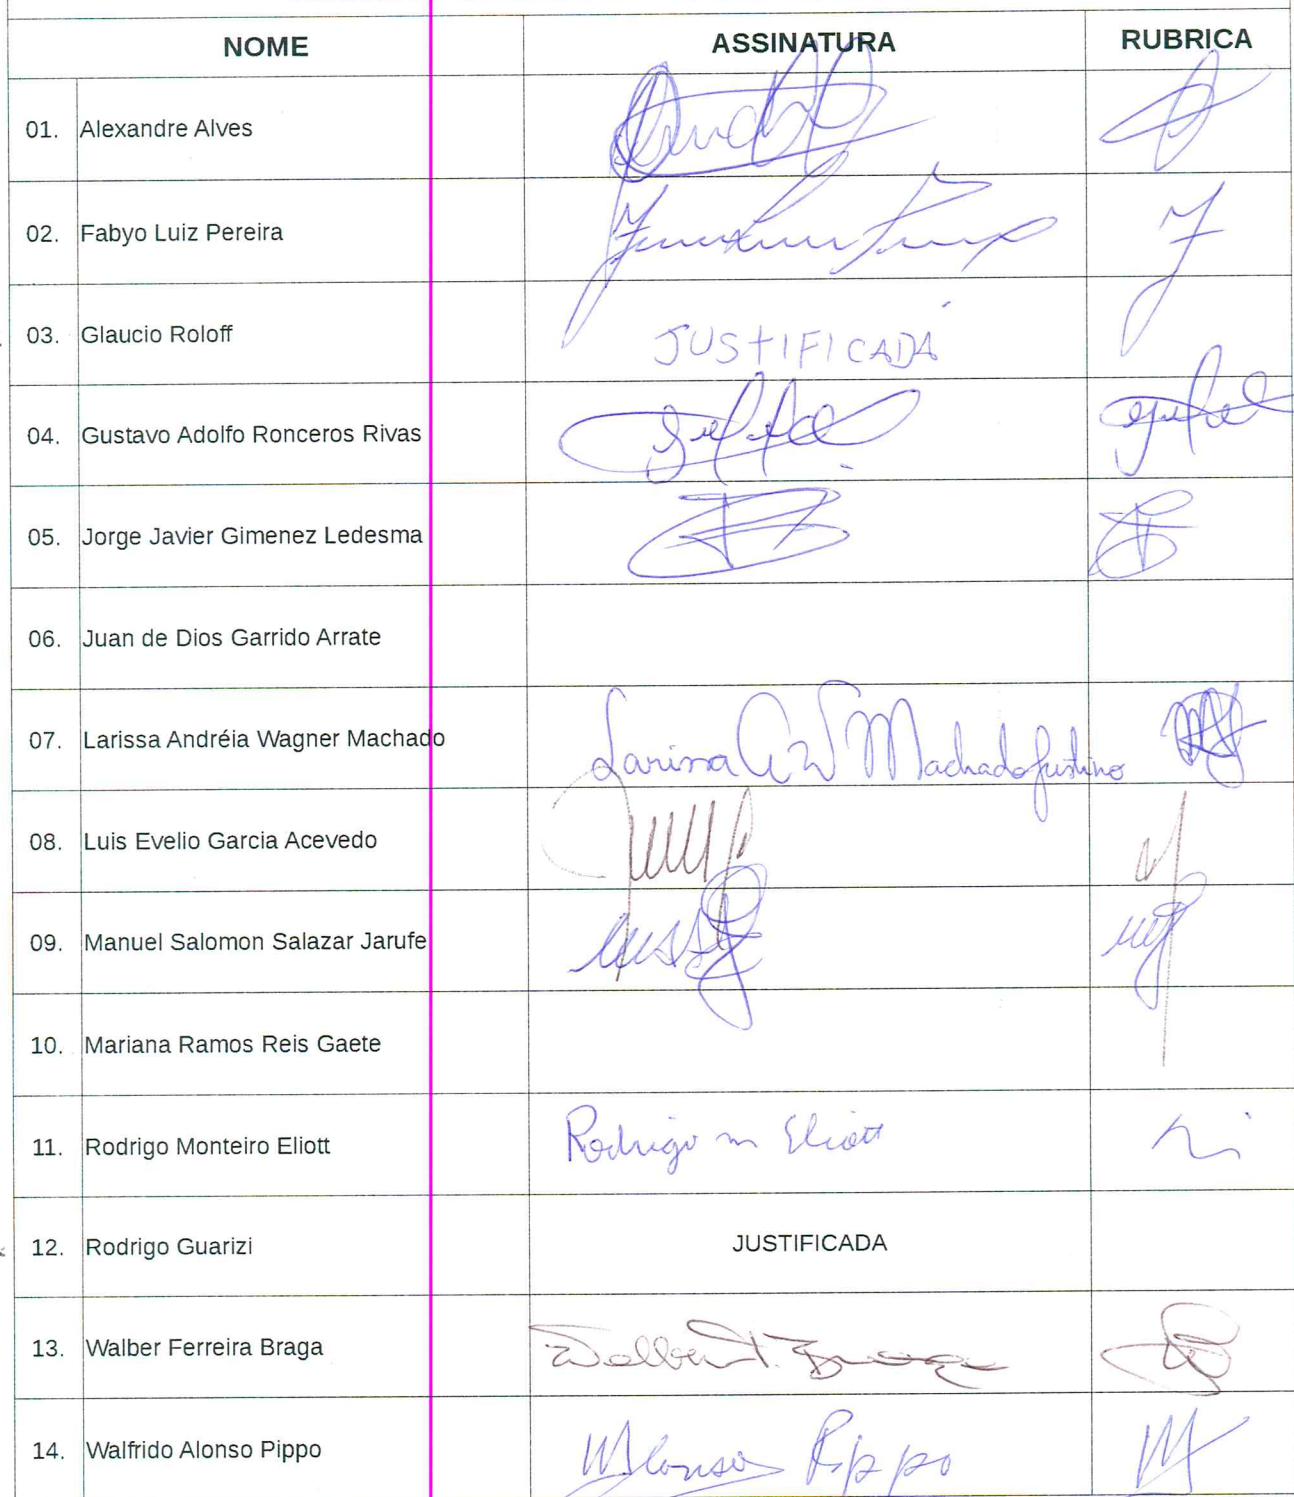 NOME ASSINATURA RUBRICA
01. Alexandre Alves
02. Fabyo Luiz Pereira
03. Glaucio Roloff JUSTIFICADA
04. Gustavo Adolfo Ronceros Rivas
05. Jorge Javier Gimenez Ledesma
06. Juan de Dios Garrido Arrate
07. Larissa Andréia Wagner Machado Larissa A W Machado Justino
08. Luis Evelio Garcia Acevedo
09. Manuel Salomon Salazar Jarufe
10. Mariana Ramos Reis Gaete
11. Rodrigo Monteiro Eliott Rodrigo m Eliott
12. Rodrigo Guarizi JUSTIFICADA
13. Walber Ferreira Braga Walber F. Braga
14. Walfrido Alonso Pippo WAlonso Pippo